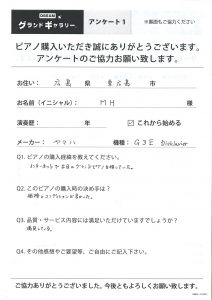 OCEAN
グランドギャラリー
アンケート1
※裏面もご協力ください
ピアノ購入いただき誠にありがとうございます。
アンケートのご協力お願い致します。
お住い: 広島 県 東広島 市
お名前(イニシャル): MH 様
演奏歴: 年 ☑ これから始める
メーカー: ヤマハ 機種: G3E Disklavier
Q1. ピアノの購入経緯を教えてください。
インターネットで
Q2. このピアノの購入の決め手は?
価格とコンディション
Q3. 品質・サービス内容には満足いただけていますでしょうか?
満足している。
Q4. その他感想やご要望等、ご自由にご記入下さい。
ありがとうございました。今後ともよろしくお願い致します。